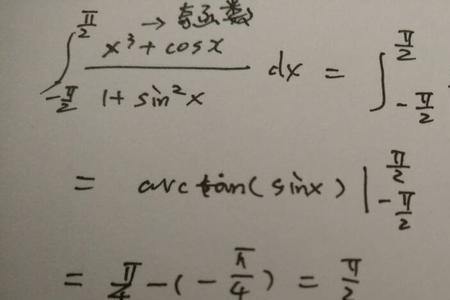 → 奇函数
∫_{-π/2}^{π/2} (x³ + cosx)/(1 + sin²x) dx = ∫_{-π/2}^{π/2}
= arctan(sinx) |_{-π/2}^{π/2}
= π/4 - (-π/4) = π/2